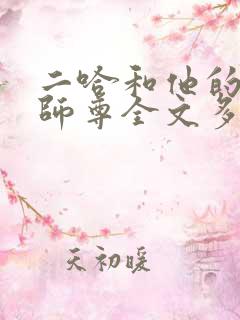 二哈和他的
師尊全文多
天初暖